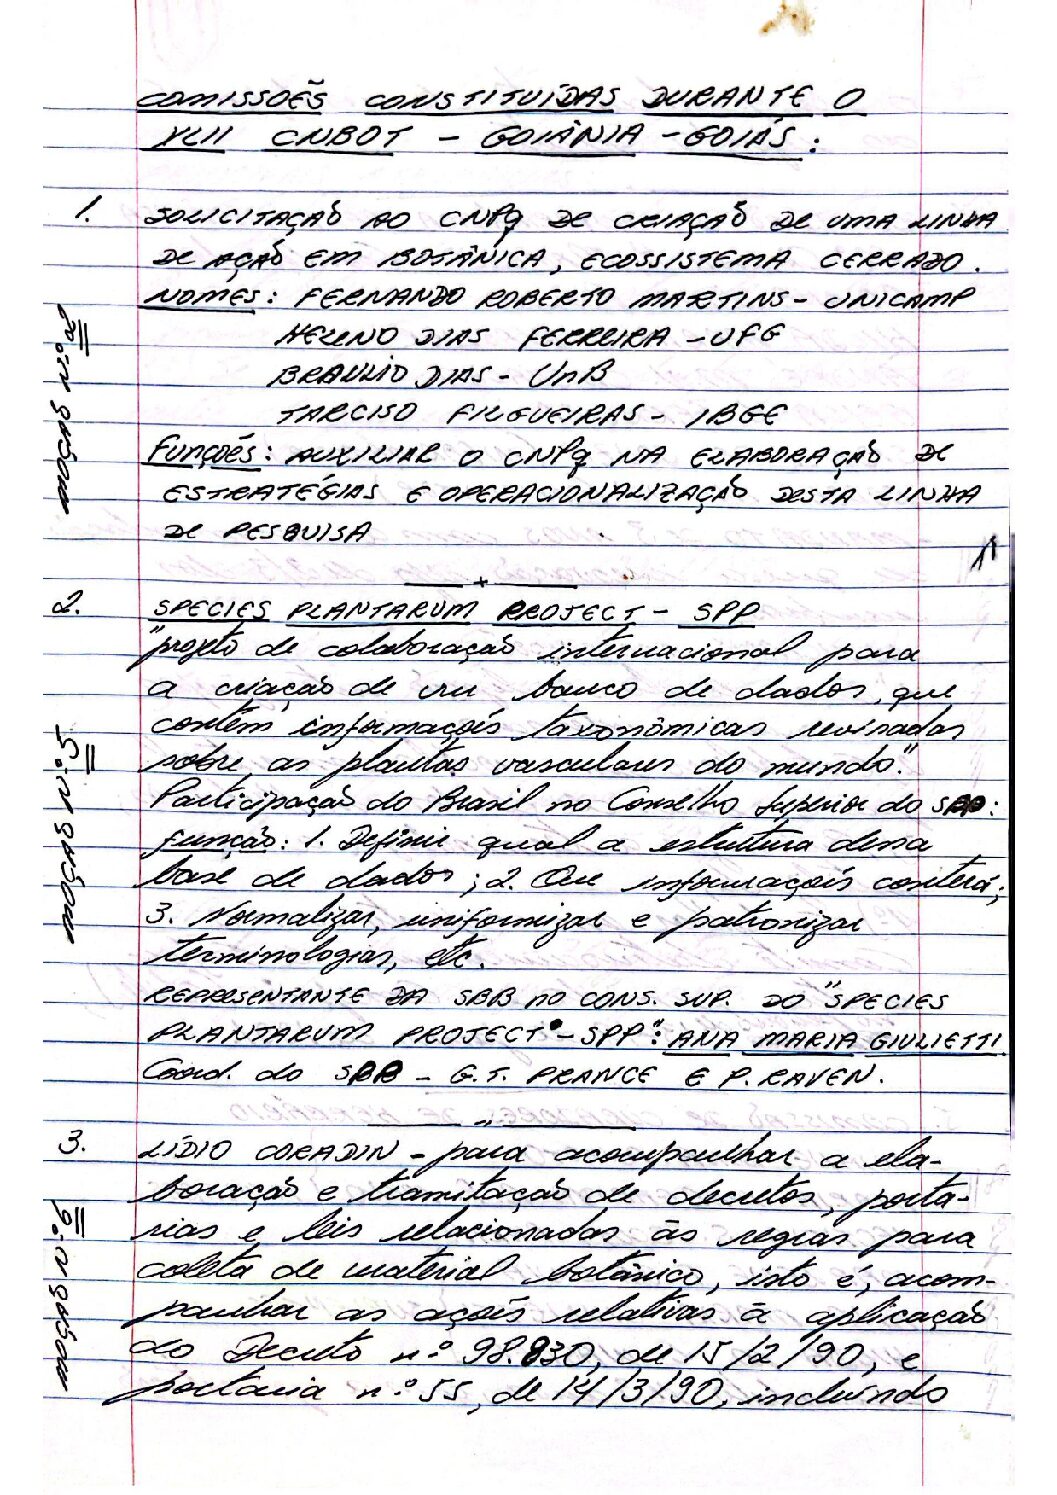 COMISSOÊS CONSTITUÍDAS DURANTE O
XLII CNBOT - GOIÂNIA - GOIÁS:
1. SOLICITAÇÃO AO CNPq DE CRIAÇÃO DE UMA LINHA
DE AÇÃO EM BOTÂNICA, ECOSSISTEMA CERRADO.
NOMES: FERNANDO ROBERTO MARTINS - UNICAMP
HELENO DIAS FERREIRA - UFG
BRAULIO DIAS - UnB
TARCISO FILGUEIRAS - IBGE
FUNÇÕES: AUXILIAR O CNPq NA ELABORAÇÃO DE
ESTRATÉGIAS E OPERACIONALIZAÇÃO DESTA LINHA
DE PESQUISA
MOÇÃO N.º
2. SPECIES PLANTARUM PROJECT - SPP
"projeto de colaboração internacional para
a criação de um banco de dados, que
contêm informações taxonômicas revisadas
sobre as plantas vasculares do mundo."
Participação do Brasil no Conselho Superior do SPP:
função: 1. Definir qual a estrutura dessa
base de dados; 2. Que informações conterá;
3. Normalizar, uniformizar e patronizar
terminologias, etc.
REPRESENTANTE DA SBB no CONS. SUP. DO "SPECIES
PLANTARUM PROJECT" - SPP": ANA MARIA GIULIETTI
Coord. do - G.T. PRANCE E P. RAVEN.
MOÇÃO N.º 5
3. LÍDIO CORADIN - para acompanhar a ela-
boração e tramitação de decretos, porta-
rias e leis relacionadas às regras para
coleta de material botânico, isto é, acom-
panhar as ações relativas à aplicação
do Decreto n.º 98.830, de 15/2/90, e
portaria n.º 55, de 14/3/90, incluindo
MOÇÃO N.º 6